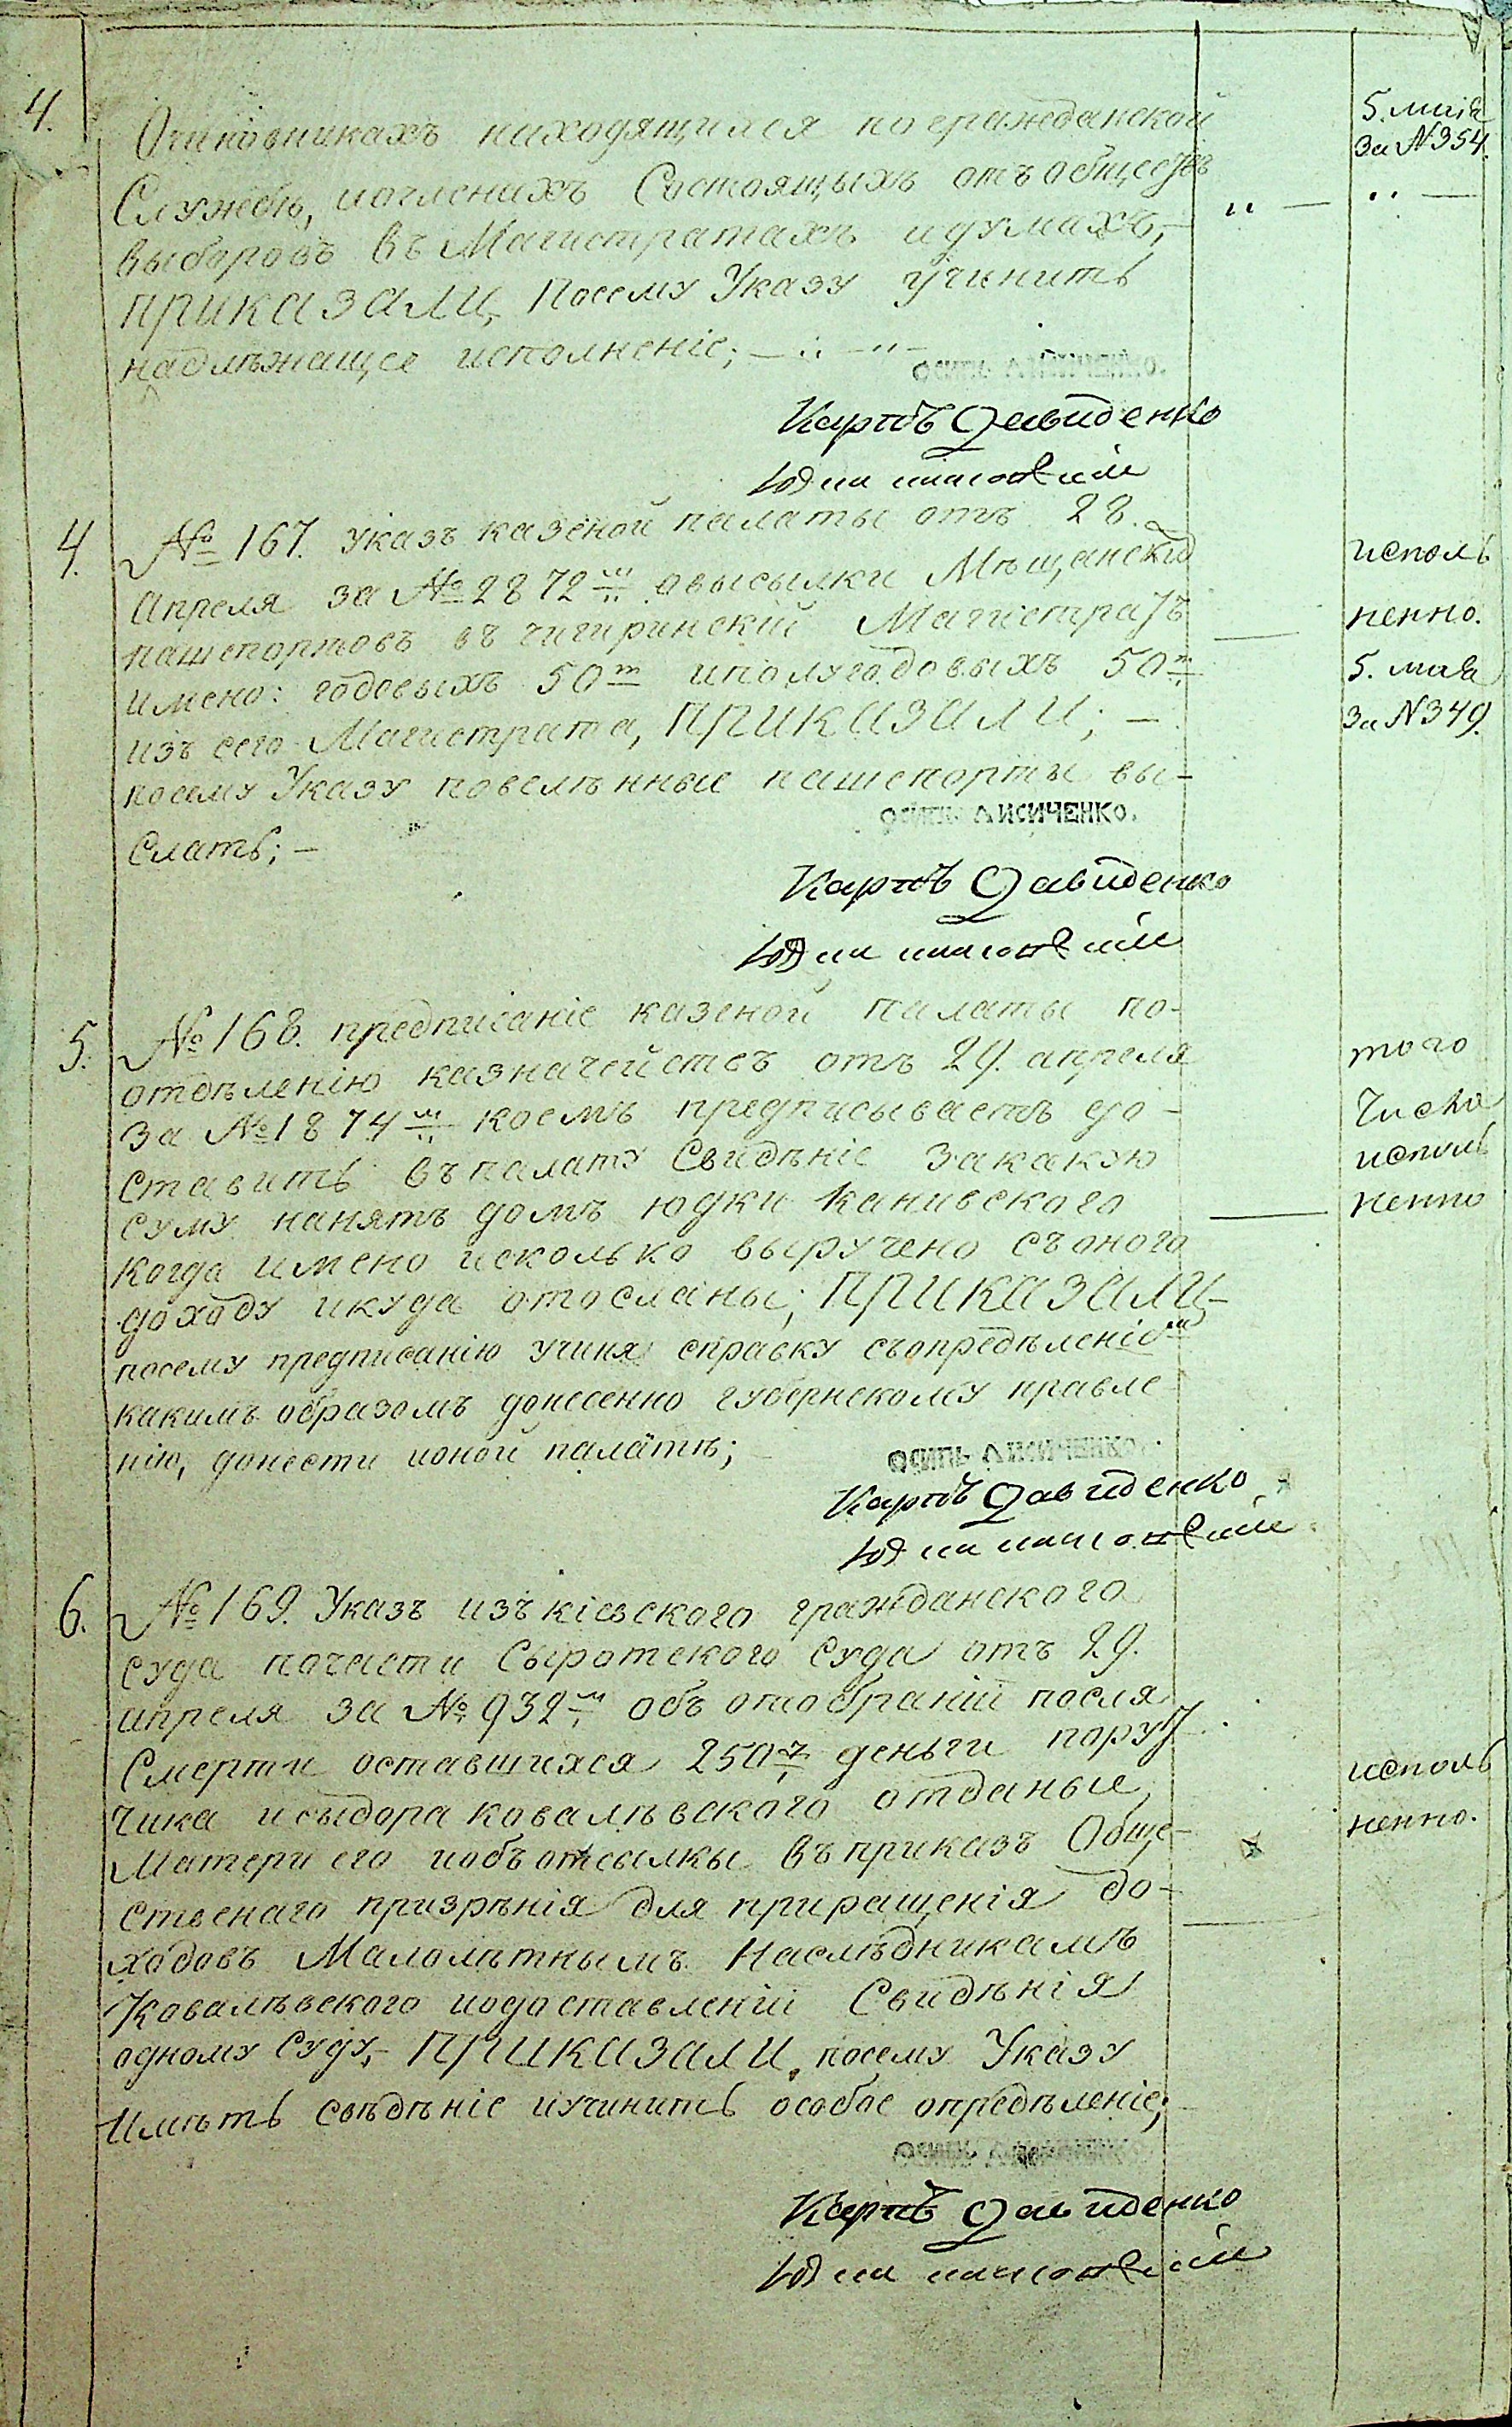 4.
Очиновникахъ находящимся по гражданской
Службѣ, ичленихъ Состоящыхъ отъ обществъ
выборовъ въ Магистратахъ идумахъ,-
ПРИКАЗАЛИ, Посему Указу учинить
надлѣжащее исполненіе; —
5. маія
За №354.
ОСИПЪ ЛИСИЧЕНКО.
Карпъ Давиденко
4. № 167. указъ казеной палаты отъ 28.
Апреля за № 2872м овысылки Мѣщанскихъ
пашпортовъ въ чигиринскій Магістратъ
имено: годовыхъ 50т иполугодовыхъ 50т
изъ сего Магистрата, ПРИКАЗАЛИ; —
посему Указу повелѣнные пашпорты вы-
слать; —
исполъ
ненно.
5. маія
За №349.
ОСИПЪ ЛИСИЧЕНКО.
Карпъ Давиденко
5. № 168. предписаніе казеной палаты по-
отдѣленію казначействъ отъ 29. апреля
за №1874м коемъ предписываетъ до-
ставить въ палату Свидѣніе Закакую
суму нанятъ домъ юдки канивского
когда имено исколько выручено съоного
доходу икуда отосланы; ПРИКАЗАЛИ,-
посему предписанію учиня справку съопредѣленіем
какимъ образомъ донесенно губернскому правле
нію, донести ионой палатѣ;
того
Числа
исполъ
ненно
ОСИПЪ ЛИСИЧЕНКО.
Карпъ Давиденко
6. № 169. Указъ изъ кіевского гражданского
суда почасти Сыротского Суда отъ 29.
апреля за № 932м объ отобраніи после
Смерти оставшихся 250 деньги пору
чика исыдора ковалѣвского отданые
Матери его иобъ отсылкы въ приказъ Обще-
ственаго призрѣнія для приращенія до-
ходовъ Малолѣтнымъ Наслѣдникамъ
Ковалѣвского иодоставленіи Свидѣнія
одному Суду,- ПРИКАЗАЛИ, посему Указу
Имѣть свѣдѣніе иучинить особое опредѣленіе;
исполъ
ненно.
ОСИПЪ ЛИСИЧЕНКО.
Карпъ Давиденко